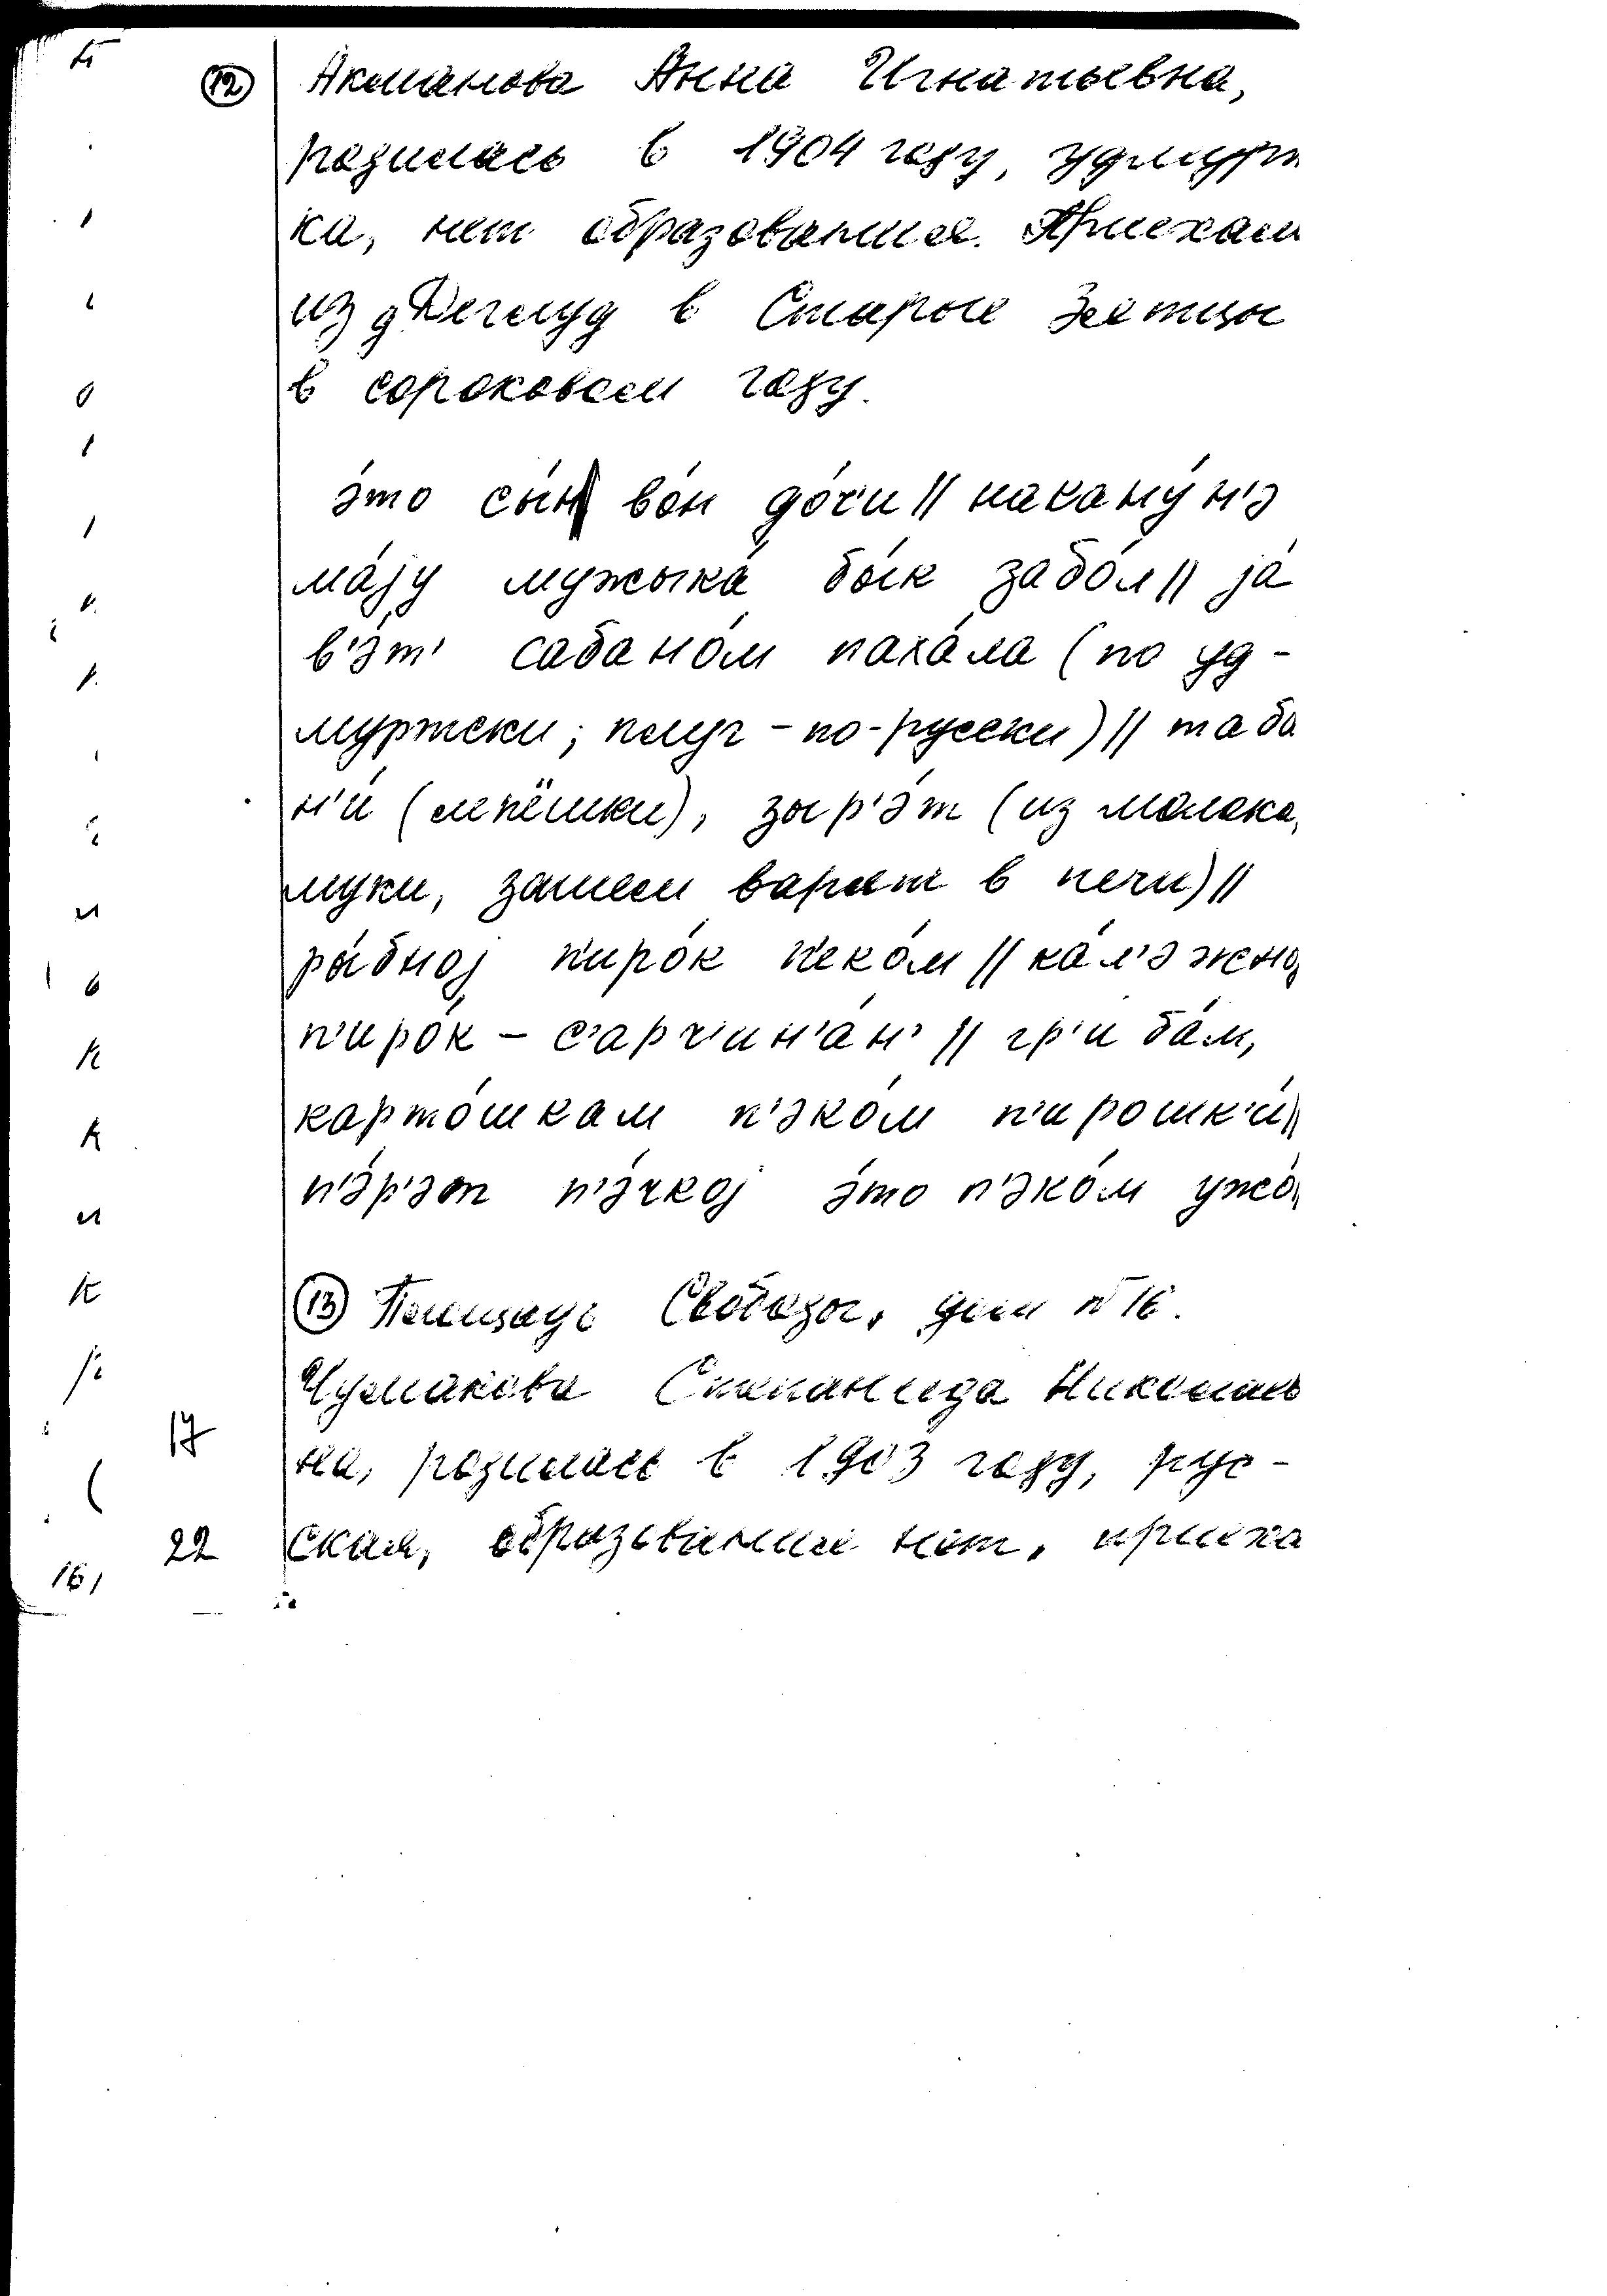 ⑫ Акманова Анна Игнатьевна,
родилась в 1904 году, удмурт
ка, нет образования. Приехали
из д Дегмуд в Старые Зятцы
в сороковом году.
э́то сы́н во́н до́ч'и || накану́н'э
ма́jу мужыка́ бы́к забо́л || jа́
в'э́т' сабано́м паха́ла (по уд-
муртски; плуг - по-русски) || таба
н'и́ (лепёшки), зыр'э́т (из молока,
муки, затем варят в печи) ||
ры́бноj п'иро́к п'еко́м || ка́л'эжноj
п'иро́к - с'арч'ин'а́н' || гр'иба́м,
карто́шкам п'эко́м п'ирошк'и́ ||
п'э́р'эт п'э́чкоj э́то п'эко́м ужо́ ||
⑬ Площадь Свободы, дом №16.
Чумакова Степанида Николаев
на, родилась в 1903 году, рус-
17
ская, образования нет, приеха
22